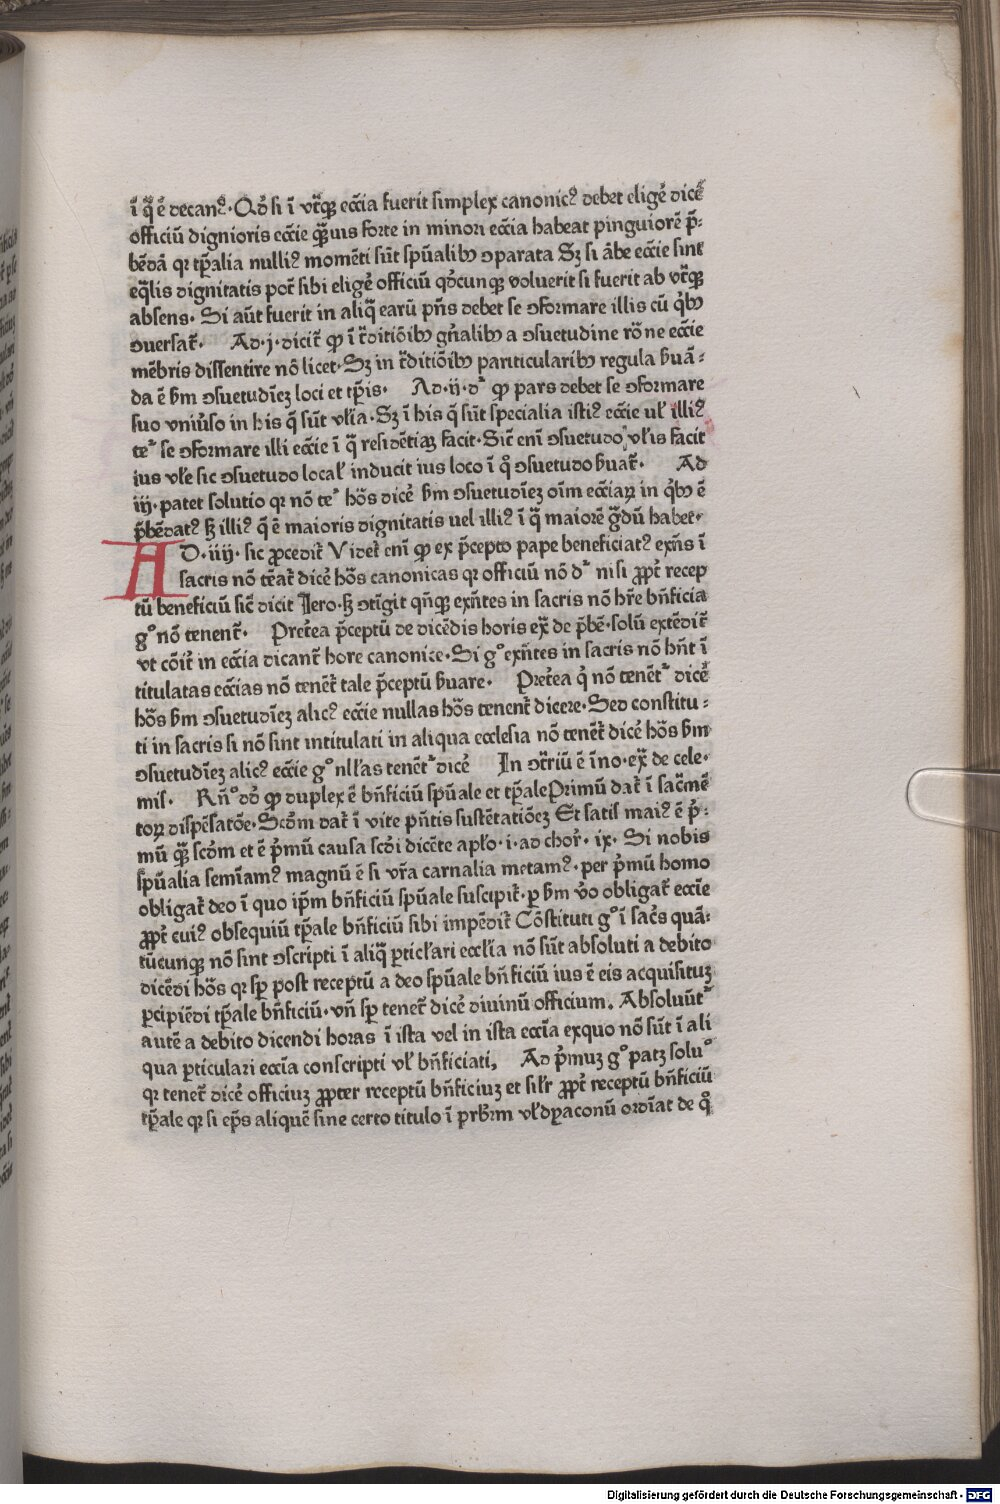 ī q̄ ē decanꝰ. Qd̓ si ī vtͣqꝫ eccīa fuerit simplex canonicꝰ debet eligē dicē
officiū dignioris eccīe qͣuis forte in minori eccīa habeat pinguiorē p̄-
bēdā qr tp̄alia nulliꝰ momēti sūt spūalibꝫ ↄparata Sꝫ si ābe eccīe sint
eq̄lis dignitatis pot̄ sibi eligē officiū qd̓cunqꝫ voluerit si fuerit ab vtͣqꝫ
absens. Si aūt fuerit in aliq̄ earū p̄ns debet se ↄformare illis cū qͥbꝫ
ↄuersat᷑. Ad.j.dicit᷑ ꝙ ī t̓ditiōibꝫ gn̄alibꝫ a ↄsuetudine rōne eccīe
mēbris dissentire nō licet. Sꝫ in t̓ditiōibꝫ pariticularibꝫ regula ẜuā-
da ē ẜm ↄsuetudīeꝫ loci et tp̄is. Ad.ij.d᷑ ꝙ pars debet se ↄformare
suo vniůso in his q̄ sūt vl̄ia. Sꝫ ī his q̄ sūt specialia istiꝰ eccīe ul̓ illiꝰ
te᷑ se ↄformare illi eccīe ī q̄ residētiaꝫ facit. Sic̄ enī ↄsuetudo vl̓is facit
ius vl̓e sic ↄsuetudo local̓ inducit ius loco ī qͦ ↄsuetudo ẜuat᷑. Ad
iij. patet solutio qr nō te᷑ hōs dicē ẜm ↄsuetudīeꝫ oīm eccīaꝝ in qͥbꝫ ē
p̄bēdatꝰ ꝫ illiꝰ q̄ ē maioris dignitatis uel illiꝰ ī q̄ maiorē gͣdū habet.
AD.iiij. sic ꝓcedit᷑ Videt᷑ enī ꝙ ex p̄cepto pape beneficiatꝰ exn̄s ī
sacris nō tēat᷑ dicē hōs canonicas qr officiū nō d᷑ nisi ꝓpt̓ recep
tū beneficiū sic̄ dicit Iero. ꝫ ↄtīgit qn̄qꝫ exn̄tes in sacris nō hr̄e bn̄ficia
gͦ nō tenent᷑. Pret̓ea p̄ceptū de dicēdis horis exͣ de p̄bē. solū extēdit᷑
vt cōit᷑ in eccīa dicant᷑ hore canonice. Si gͦ exn̄tes in sacris nō hn̄t ī
titulatas eccīas nō tenēt᷑ tale p̄ceptū ẜuare. Pret̓ea qͥ nō tenēt᷑ dicē
hōs ẜm ↄsuetudīeꝫ alicꝰ eccīe nullas hōs tenent᷑ dicere. Sed constitu-
ti in sacris si nō sint intitulati in aliqua ecclesia nō tenēt᷑ dicē hōs ẜm
ↄsuetudīeꝫ alicꝰ eccīe gͦ nll̓as tenēt᷑ dicē In ↄt̓riū ē īno. exͣ de cele.
mis̄. Rn̄ᵒ dd̓ ꝙ duplex ē bn̄ficiū spūale et tp̄ale Primū dat᷑ ī sac̄mē
toꝝ dispēsatōe. Scd̓m dat᷑ ī vite p̄ntis sustētatiōeꝫ Et satis maiꝰ ē p̓-
mū qͣꝫ scd̓m et ē p̓mū causa scd̓i dicēte apl̓o.i.ad chor̄.ix. Si nobis
spūalia semīamꝰ magnū ē si vr̄a carnalia metamꝰ. per p̓mū homo
obligat᷑ deo ī quo ip̄m bn̄ficiū spūale suscipit. ꝑ ẜm v̓o obligat᷑ eccīe
ꝓpt̓ cuiꝰ obsequiū tp̄ale bn̄ficiū sibi impēdit᷑ Cōstituti gͦ ī sac̓s quā-
tūcunqꝫ nō sint ↄscripti ī aliq̄ ꝑticl̓ari eccl̓ia nō sūt absoluti a debito
dicēdi hōs qr sꝑ post receptū a deo spūale bn̄ficiū ius ē eis acquisituꝫ
ꝑcipiēdi tp̄ale bn̄ficiū. vn̄ sꝑ tenet᷑ dicē diuinū officium. Absoluūt᷑
autē a debito dicendi horas ī ista vel in ista eccīa exquo nō sūt ī ali
qua ꝑticulari eccīa conscripti vl̓ bn̄ficiati, Ad p̓muꝫ gͦ patꝫ soluᵒ
qr tenet᷑ dicē officiuꝫ ꝓpter receptū bn̄ficiuꝫ et sil̓r ꝓpt̓ receptū bn̄ficiū
tp̄ale qr si ep̄s aliquē sine certo titulo ī prb̄rm vl̓ dyaconū ordīat de qͦ
Digitalisierung gefördert durch die Deutsche Forschungsgemeinschaft - DFG